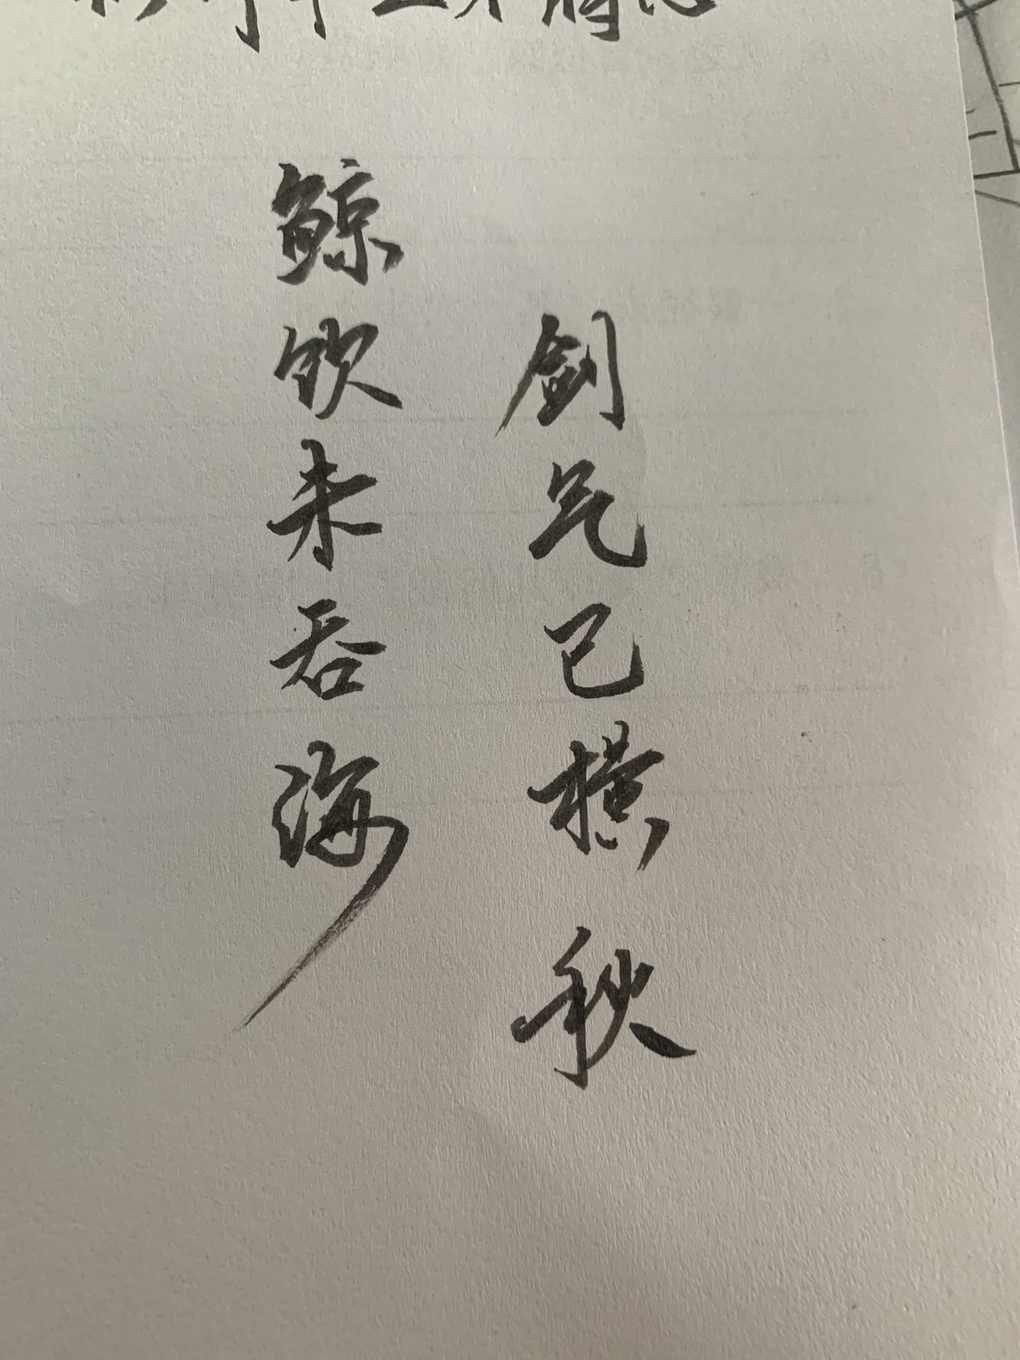 鲸饮未吞海
剑气已横秋